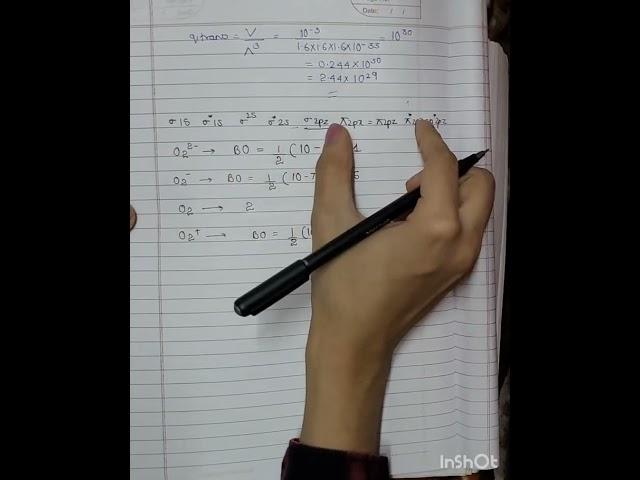 Date: / /
qtrans = V/Λ³ = 10⁻³/1.6×1.6×1.6×10⁻³³ = 10³⁰
= 0.244×10³⁰
= 2.44×10²⁹
σ1s σ*1s σ2s σ*2s σ2pz π2px = π2pz
O₂²⁻ → BO = 1/2 (10 -
O₂⁻ → BO = 1/2 (10-7
O₂ → 2
O₂⁺ → BO = 1/2 (
InShOt